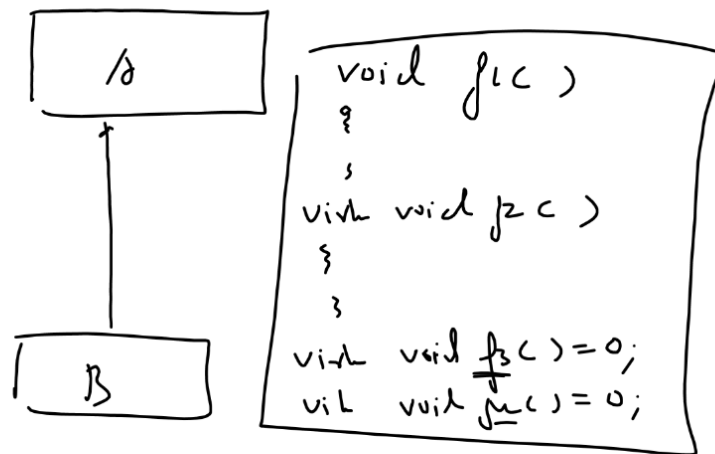 A
B
void f1( )
{
}
virtu void f2( )
{
}
virtu void f3( )=0;
virt void f4( )=0;